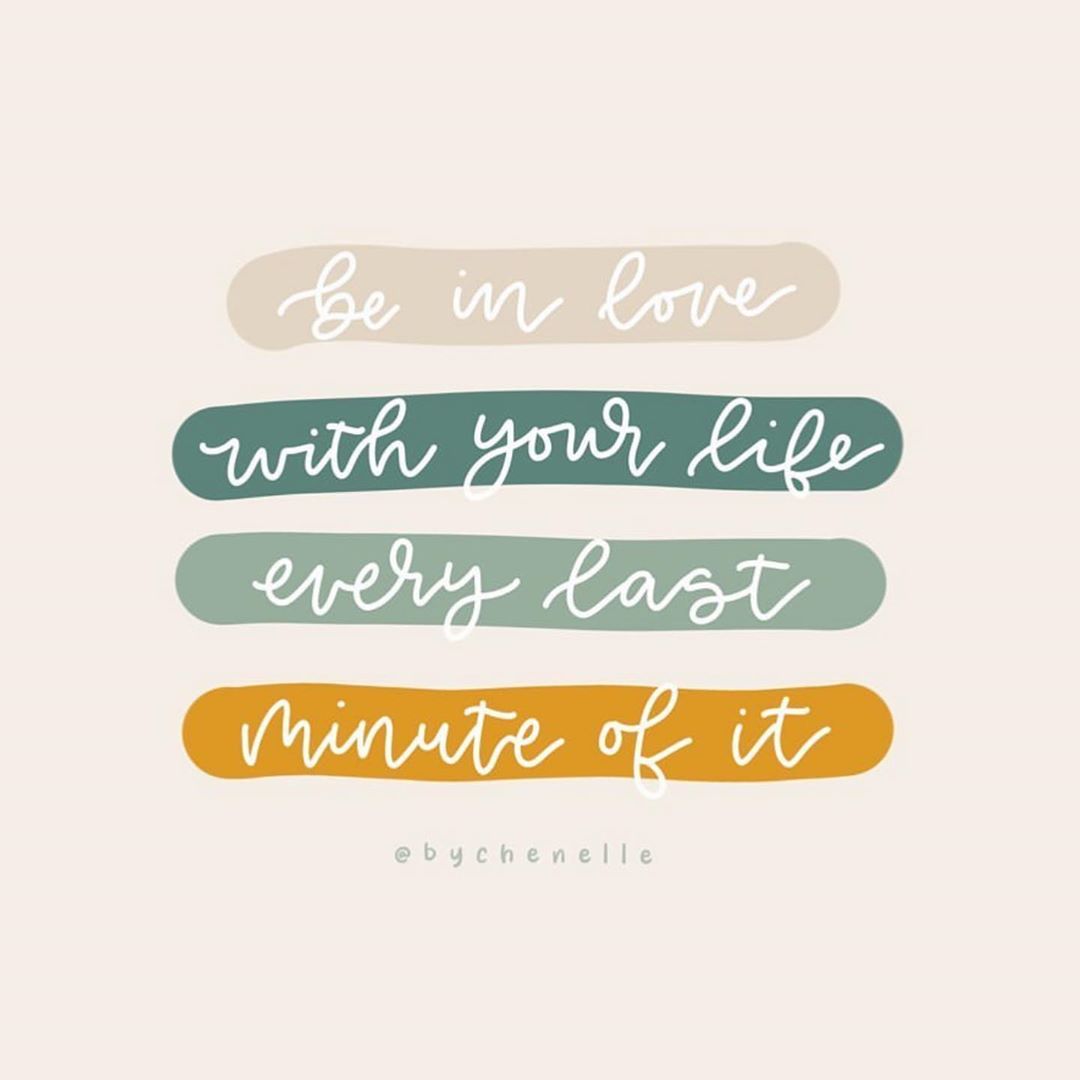 be in love
with your life
every last
minute of it
@bychenelle